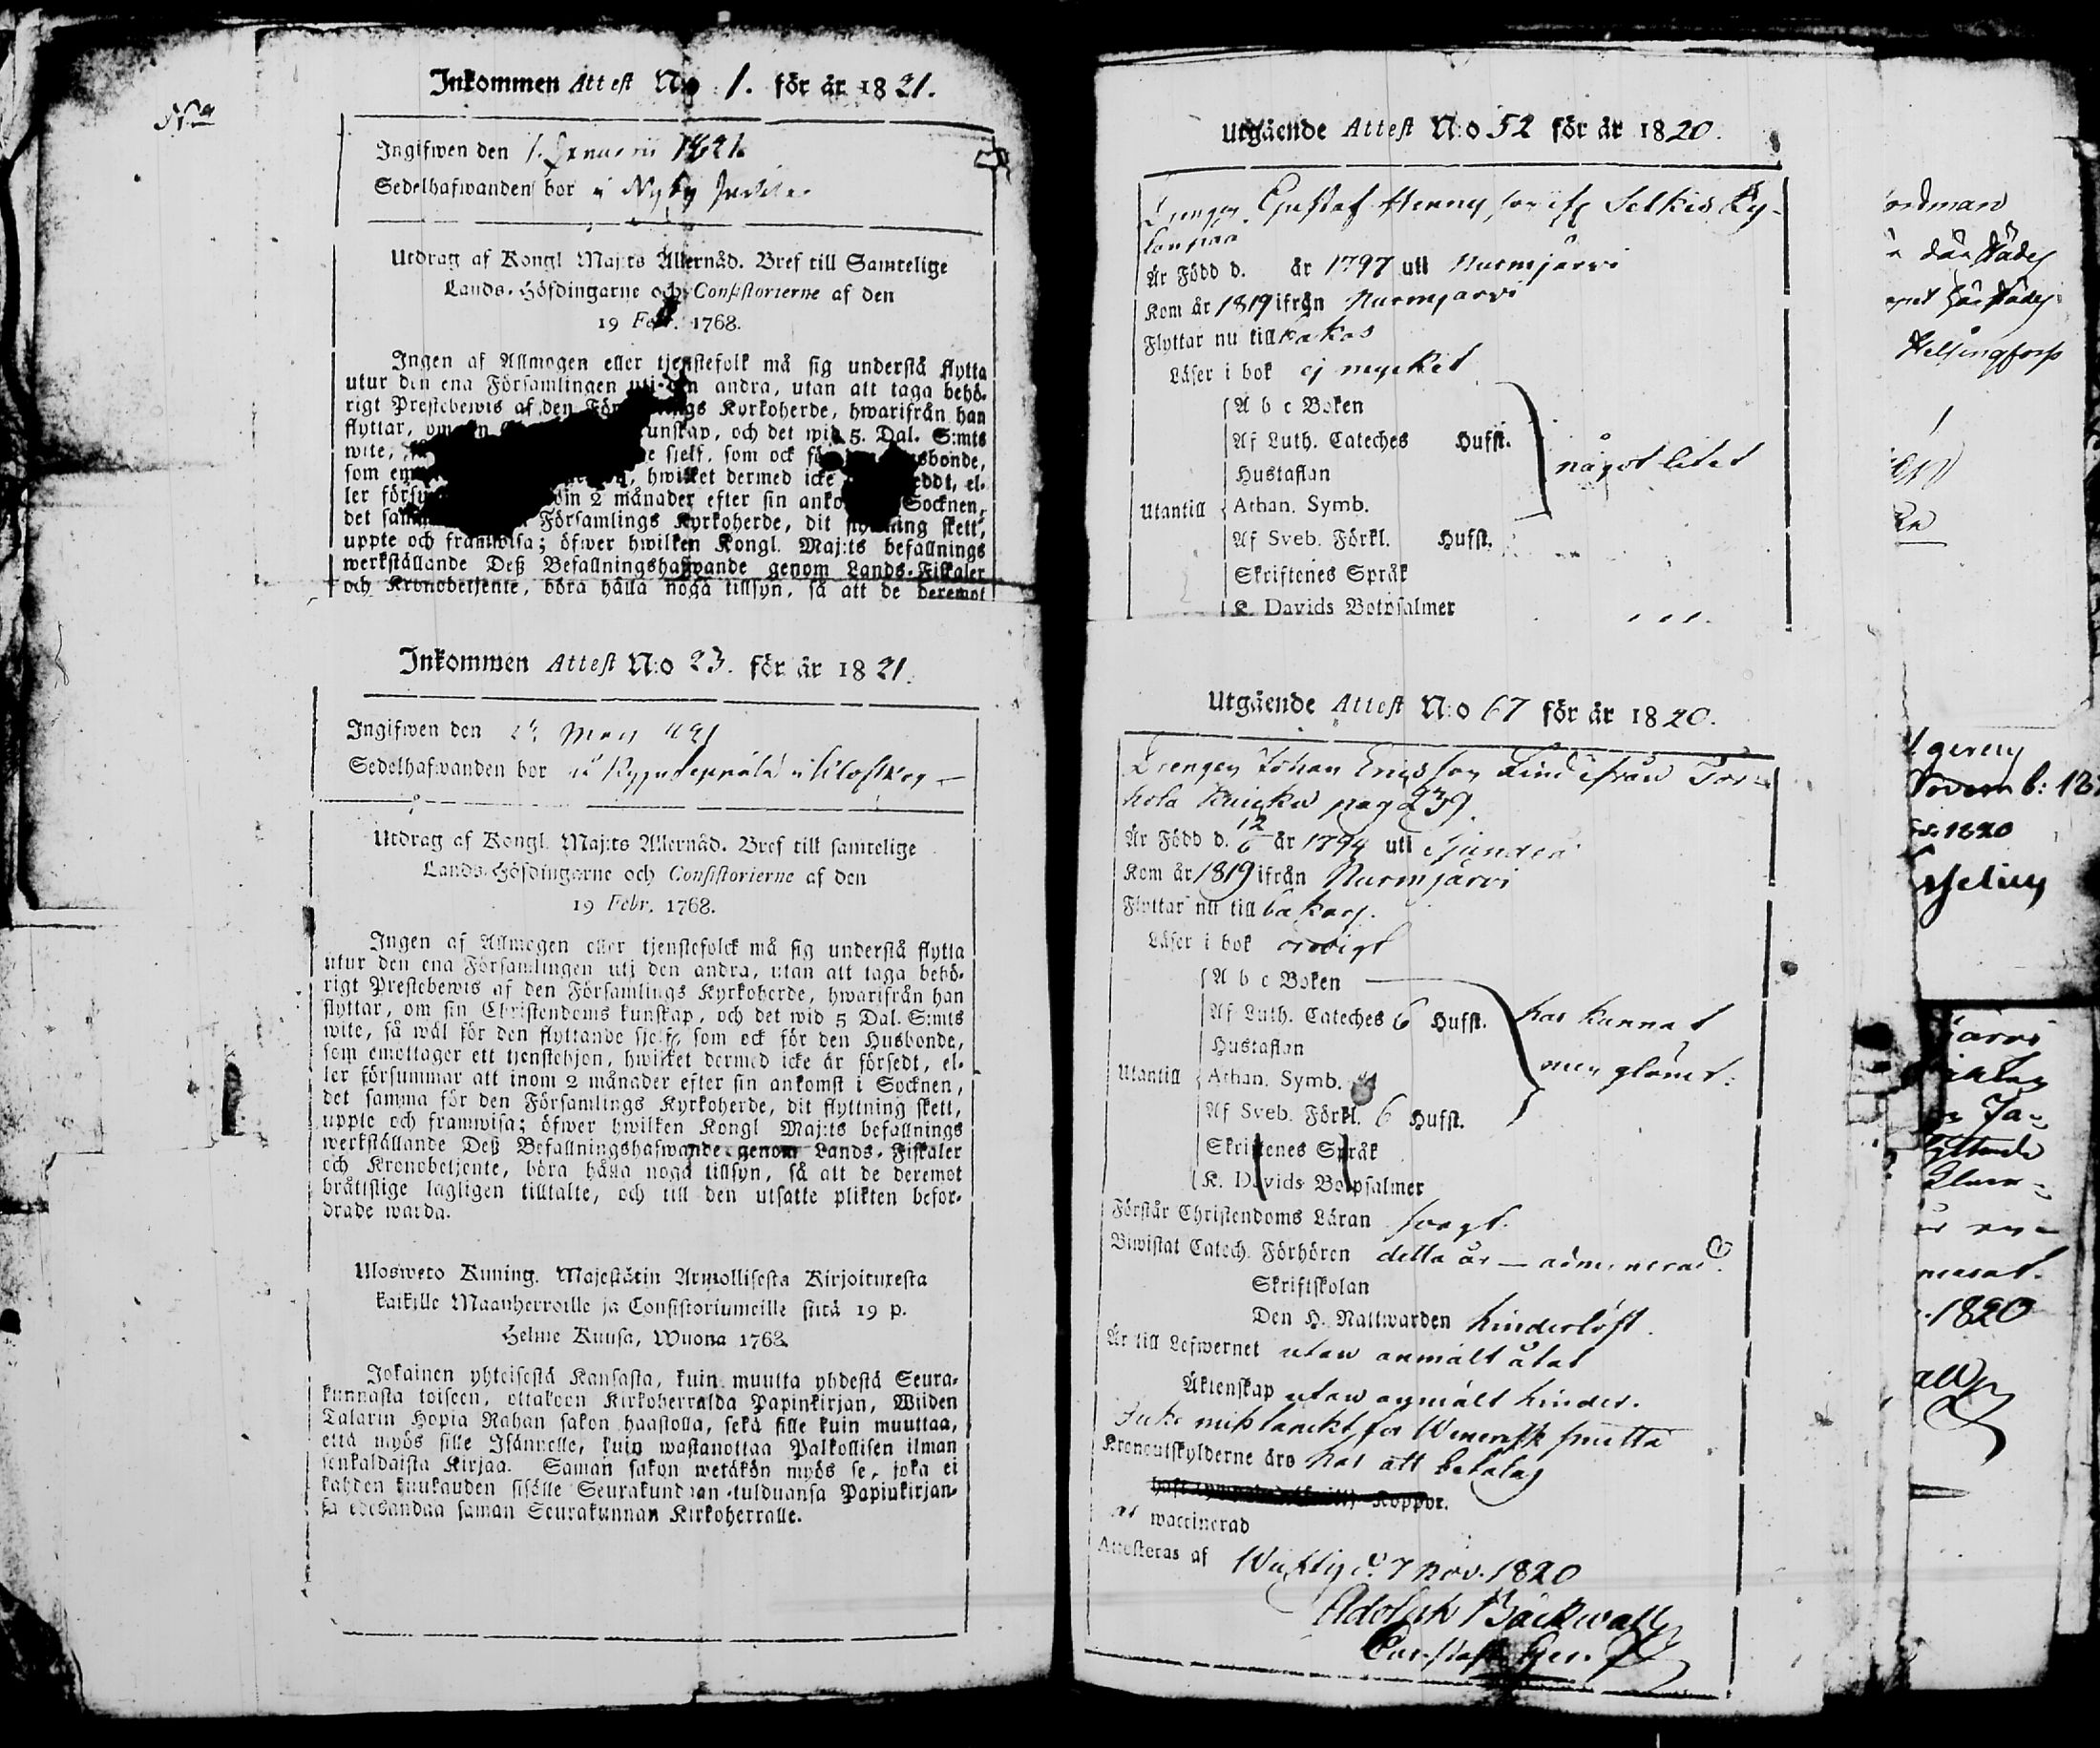 No
Inkommen Attest N:o 1. för år 1821.
Ingifwen den 1. Januarii 1821.
Sedelhafwanden bor i Nyby
Utdrag af Kongl Maj:ts Allernåd. Bref till Samtelige
Lands-Höfdingarne och Consistorierne af den
19 Febr. 1768.
Ingen af Allmogen eller tjenstefolk må sig understå flytta
utur den ena Församlingen uti den andra, utan att taga behö-
rigt Prestebewis af den Kyrkoherde, hwarifrån han
flyttar, kunskap, och det wid 5. Dal. S:mts
wite, sjelf, som ock
som hwilket dermed icke
ler 2 månader efter sin Socknen,
det Församlings Kyrkoherde, dit skett,
uppte och framwisa; öfwer hwilken Kongl. Maj:ts befallnings
werkställande Deß Befallningshafwande genom Lands-Fiskaler
och Kronobetjente, böra hålla noga tillsyn, så att de deremot
Inkommen Attest N:o 23. för år 1821.
Ingifwen den May
Sedelhafwanden bor
Utdrag af Kongl. Maj:ts Allernåd. Bref till samtelige
Lands-Höfdingarne och Consistorierne af den
19 Febr. 1768.
Ingen af Allmogen eller tjenstefolck må sig understå flytta
utur den ena Församlingen uti den andra, utan att taga behö-
rigt Prestebewis af den Församlings Kyrkoherde, hwarifrån han
flyttar, om sin Christendoms kunskap, och det wid 5 Dal. S:mts
wite, så wäl för den flyttande sjelf, som ock för den Husbonde,
som emottager ett tjenstehjon, hwilket dermed icke är försedt, el-
ler försummar att inom 2 månader efter sin ankomst i Socknen,
det samma för den Församlings Kyrkoherde, dit flyttning skett,
uppte och framwisa; öfwer hwilken Kongl Maj:ts befallnings
werkställande Deß Befallningshafwande genom Lands-Fiskaler
och Kronobetjente, böra hålla noga tillsyn, så att de deremot
bråttslige lagligen tilltalte, och till den utsatte plikten befor-
drade warda.
Ulosweto Kuning. Majestätin Armollisesta Kirjoituxesta
kaikille Maanherroille ja Consistoriumeille siitä 19 p.
Helme Kuusa, Wuona 1768.
Jokainen yhteisestä Kansasta, kuin muutta yhdestä Seura-
kunnasta toiseen, ottakoon Kirkoherralda Papinkirjan, Wiiden
Talarin Hopia Rahan sakon haastolla, sekä sille kuin muuttaa,
että myös sille Isännelle, kuin wastanottaa Palkollisen ilman
senkaldaista Kirjaa. Saman sakon wetäkön myös se, joka ei
kahden kuukauden sisälle Seurakundaan tulduansa Papinkirjan-
sa edesandaa saman Seurakunnan Kirkoherralle.
Utgående Attest N:o 52 för år 1820.
Drengen Gustaf Henricsson ifr Selkis Ky-
lanpää
Är Född d. år 1797 uti Nurmjärvi
Kom år 1819 ifrån Nurmjärvi
Flyttar nu till bakas
Läser i bok ej mycket
A b c Boken
Af Luth. Cateches Hufst.
Hustaflan
något litet
Utantill Athan. Symb.
Af Sveb. Förkl. Hufst.
Skriftenes Språk
K. Davids Botpsalmer
Utgående Attest N:o 67 för år 1820.
Drengen Johan Ericsson Lind ifrån Tor-
hola Knicku pag 239.
Är Född d. 12/6 år 1794 uti Sjundeå
Kom år 1819 ifrån Nurmjärvi
Flyttar nu till bakas.
Läser i bok oredigt
A b c Boken
Af Luth. Cateches 6 Hufst.
har kunnat
Hustaflan
men glömt.
Utantill Athan. Symb.
Af Sveb. Förkl. 6 Hufst.
Skriftenes Språk
K. Davids Botpsalmer
Förstår Christendoms Läran svagt.
Biwistat Catech. Förhören detta år — admonerad.
Skriftskolan
Den H. Nattwarden hinderlöst.
Är till Lefwernet utan anmält åtal
Äktenskap utan anmält hinder.
Icke mißtänckt för Venerisk smitta
Kronoutskylderne äro har att betala
Koppor.
är waccinerad
Attesteras af Wichtis d. 7 Nov. 1820
Adolph Bäckvall
ordman
Helsingfors
Novemb: 18
1820
järvi
Ja-
1820
all